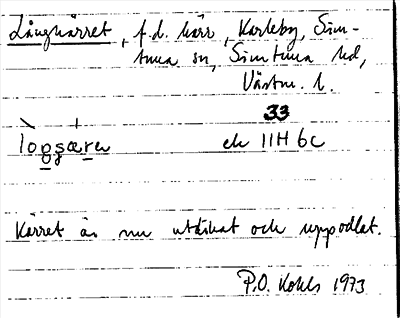 Långkärret, f.d. kärr, Karleby, Sim-
tuna sn, Simtuna hd,
Västm. l.
33
loggsæ̀ren ek 11H 6c
Kärret är nu utdikat och uppodlat.
P.O. Kohls 1973